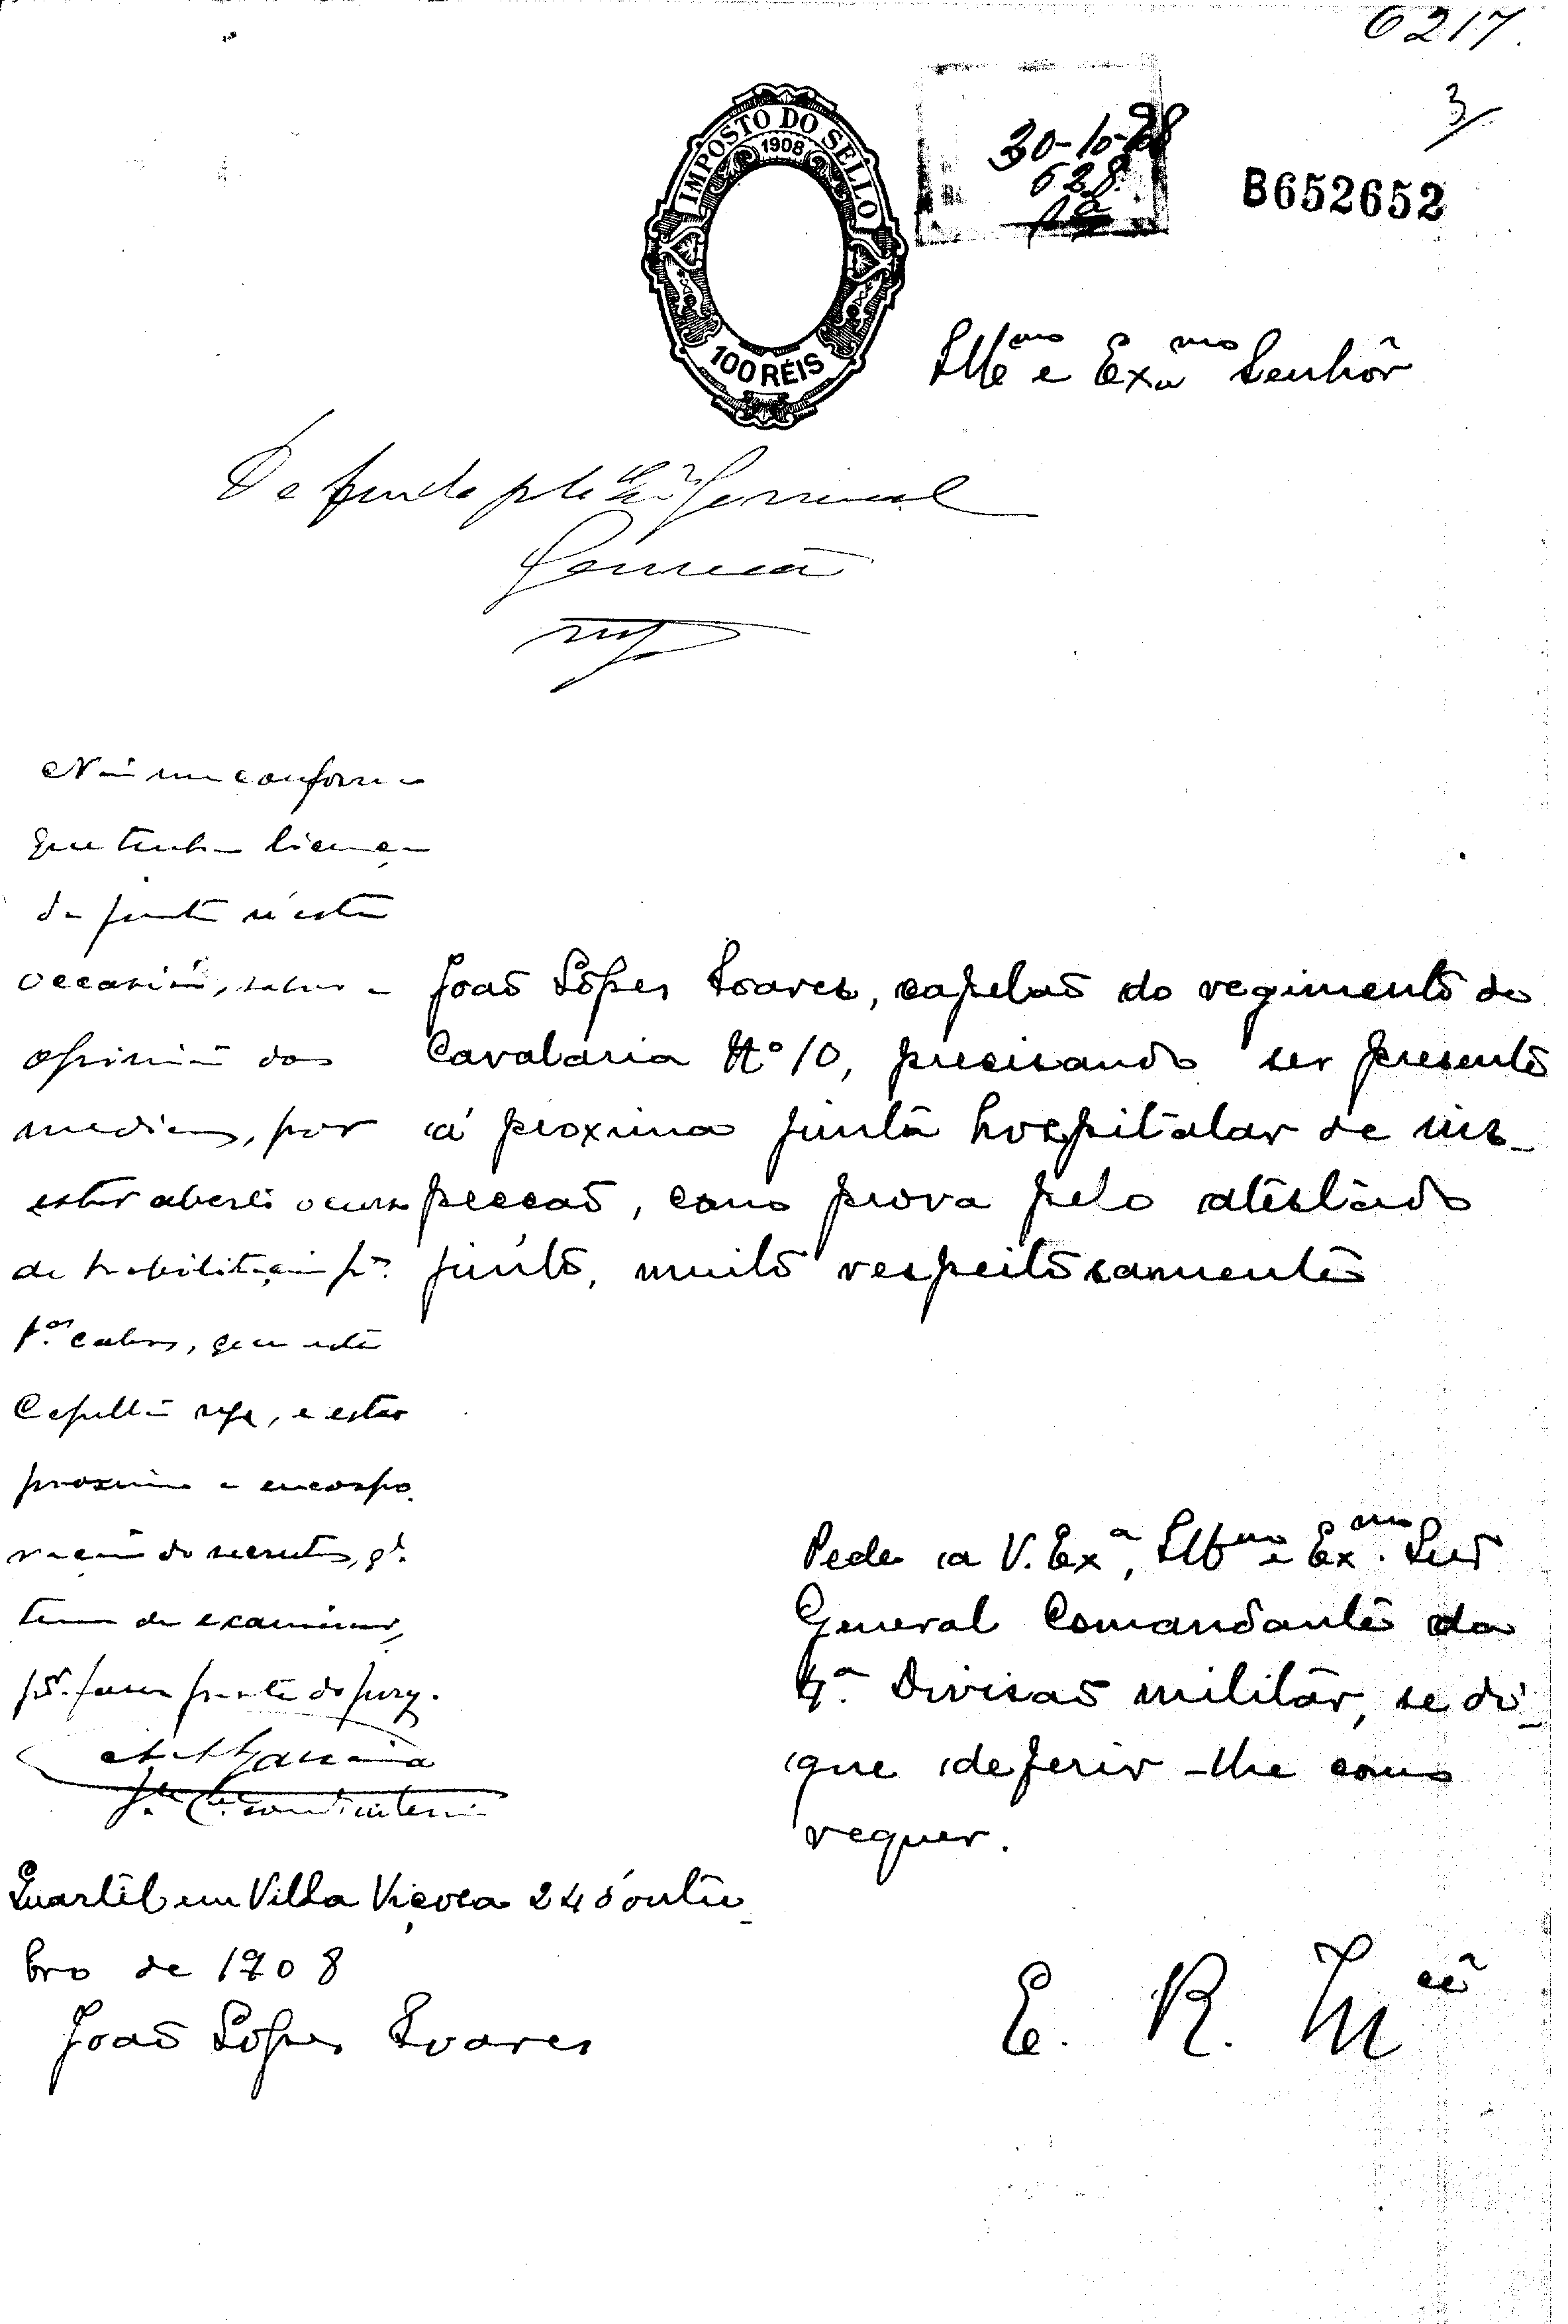 6217.
3
IMPOSTO DO SELLO
1908
100 RÉIS
30-10-08
628
1ª
B652652
Illmo e Exmo Senhôr
Deferido pelo Exº General
Não me conformo
que tenha licença
da junta n'esta
occasião, salvo a
opinião dos
medicos, por
estar aberto o curso
de habilitação pª
1.os cabos, que este
Capellão rege, e estar
proximo a encorpo
ração de recrutas, qe.
tem de examinar,
pª. fazer parte do jury.
João Lopes Soares, capelão do regimento de
Cavalaria Nº 10, precisando ser presente
á proxima junta hospitalar de ins-
pecção, como prova pelo atestado
junto, muito respeitosamente
Pede a V. Exª, Illmo e Exmo. Snr
General Comandante da
4ª Divisão militar, se di-
gne deferir-lhe como
requer.
Quartel em Villa Viçosa 24 d'outu-
bro de 1908
João Lopes Soares
E. R. Mcê